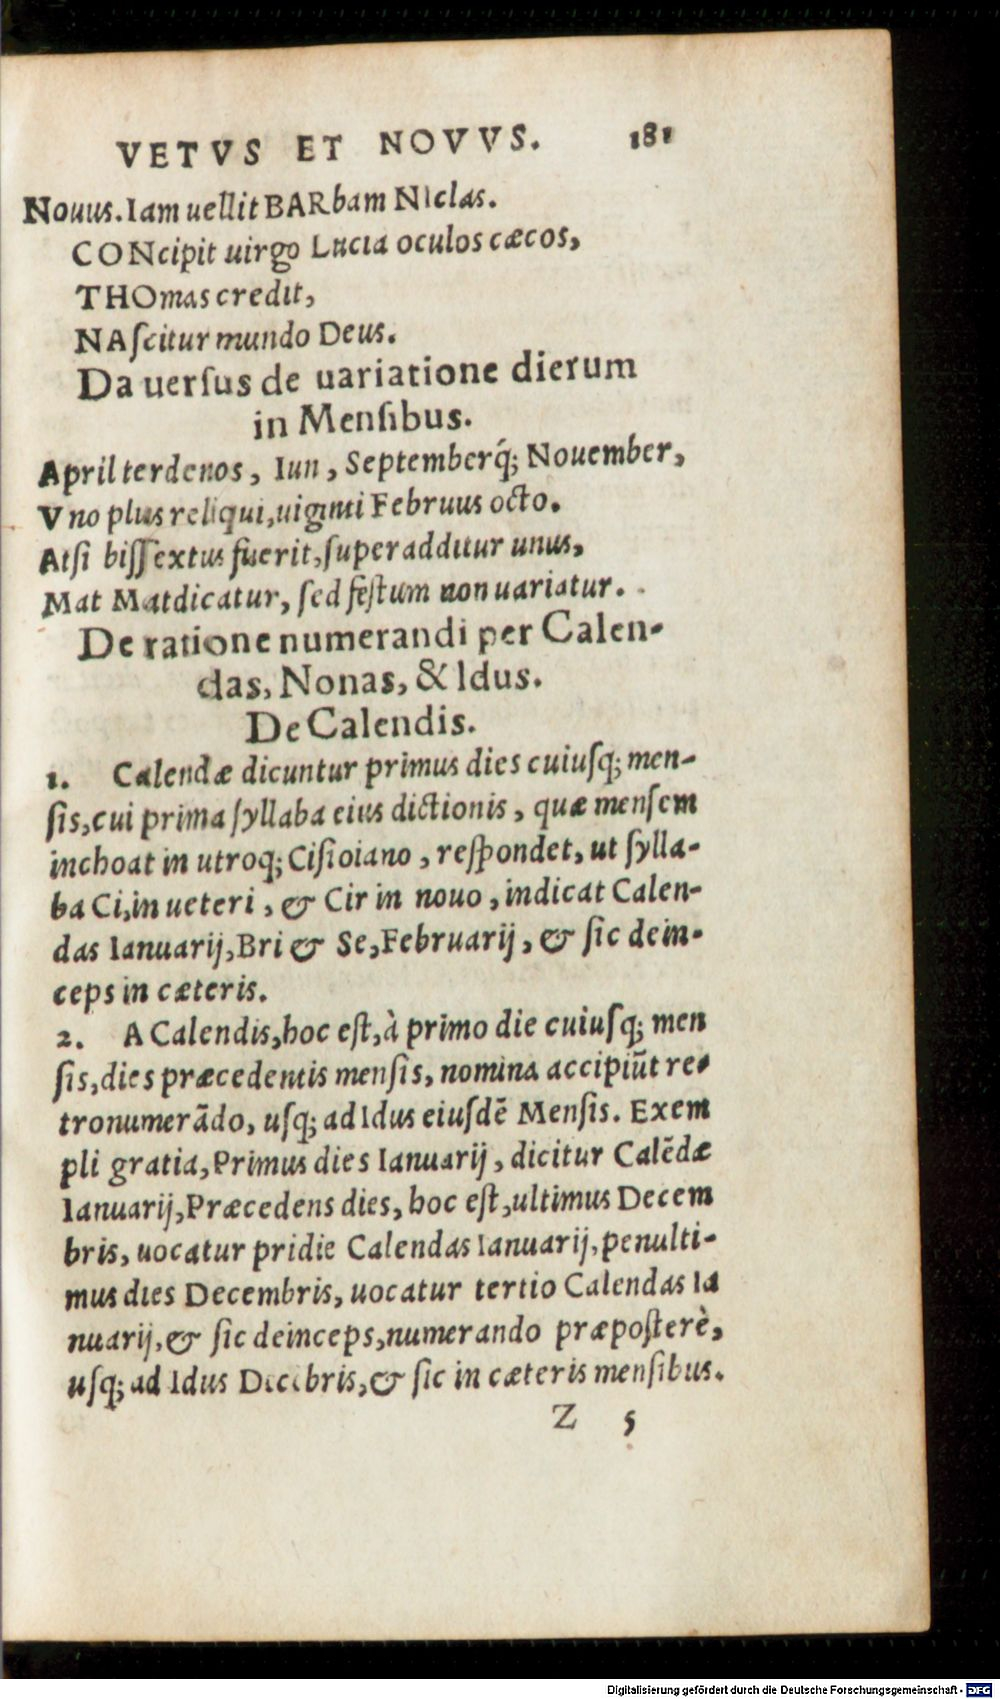 VETVS ET NOVVS. 181
Nouus. Iam uellit BARbam NIclas.
CONcipit uirgo Lucia oculos cæcos,
THOmas credit,
NAſcitur mundo Deus.
Da uerſus de uariatione dierum
in Menſibus.
April terdenos, Iun, Septemberq́; Nouember,
Vno plus reliqui, uiginti Februus octo.
Atſi biſſextus fuerit, ſuperadditur unus,
Mat Matdicatur, ſed feſtum non uariatur.
De ratione numerandi per Calen-
das, Nonas, & Idus.
De Calendis.
1. Calendæ dicuntur primus dies cuiuſq; men-
ſis, cui prima ſyllaba eius dictionis, quæ menſem
inchoat in utroq; Ciſioiano, reſpondet, ut ſylla-
ba Ci, in ueteri, & Cir in nouo, indicat Calen-
das Ianuarij, Bri & Se, Februarij, & ſic dein-
ceps in cæteris.
2. A Calendis, hoc eſt, à primo die cuiuſq; men
ſis, dies præcedentis menſis, nomina accipiūt re-
tronumerādo, uſq; ad Idus eiuſdē Menſis. Exem
pli gratia, Primus dies Ianuarij, dicitur Calēdæ
Ianuarij, Præcedens dies, hoc eſt, ultimus Decem
bris, uocatur pridie Calendas Ianuarij, penulti-
mus dies Decembris, uocatur tertio Calendas Ia
nuarij, & ſic deinceps, numerando præpoſterè,
uſq; ad Idus Decēbris, & ſic in cæteris menſibus.
Z 5
Digitalisierung gefördert durch die Deutsche Forschungsgemeinschaft - DFG